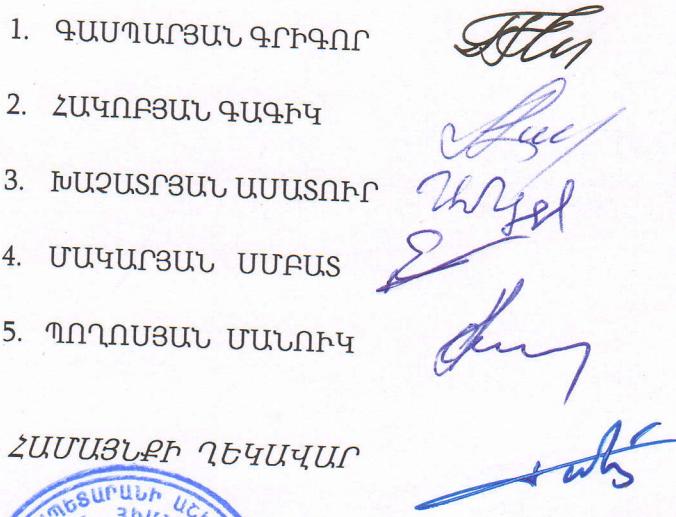 1. ԳԱՍՊԱՐՅԱՆ ԳՐԻԳՈՐ
2. ՀԱԿՈԲՅԱՆ ԳԱԳԻԿ
3. ԽԱՉԱՏՐՅԱՆ ԱՍԱՏՈՒՐ
4. ՄԱԿԱՐՅԱՆ ՍՄԲԱՏ
5. ՊՈՂՈՍՅԱՆ ՄԱՆՈՒԿ
ՀԱՄԱՅՆՔԻ ՂԵԿԱՎԱՐ